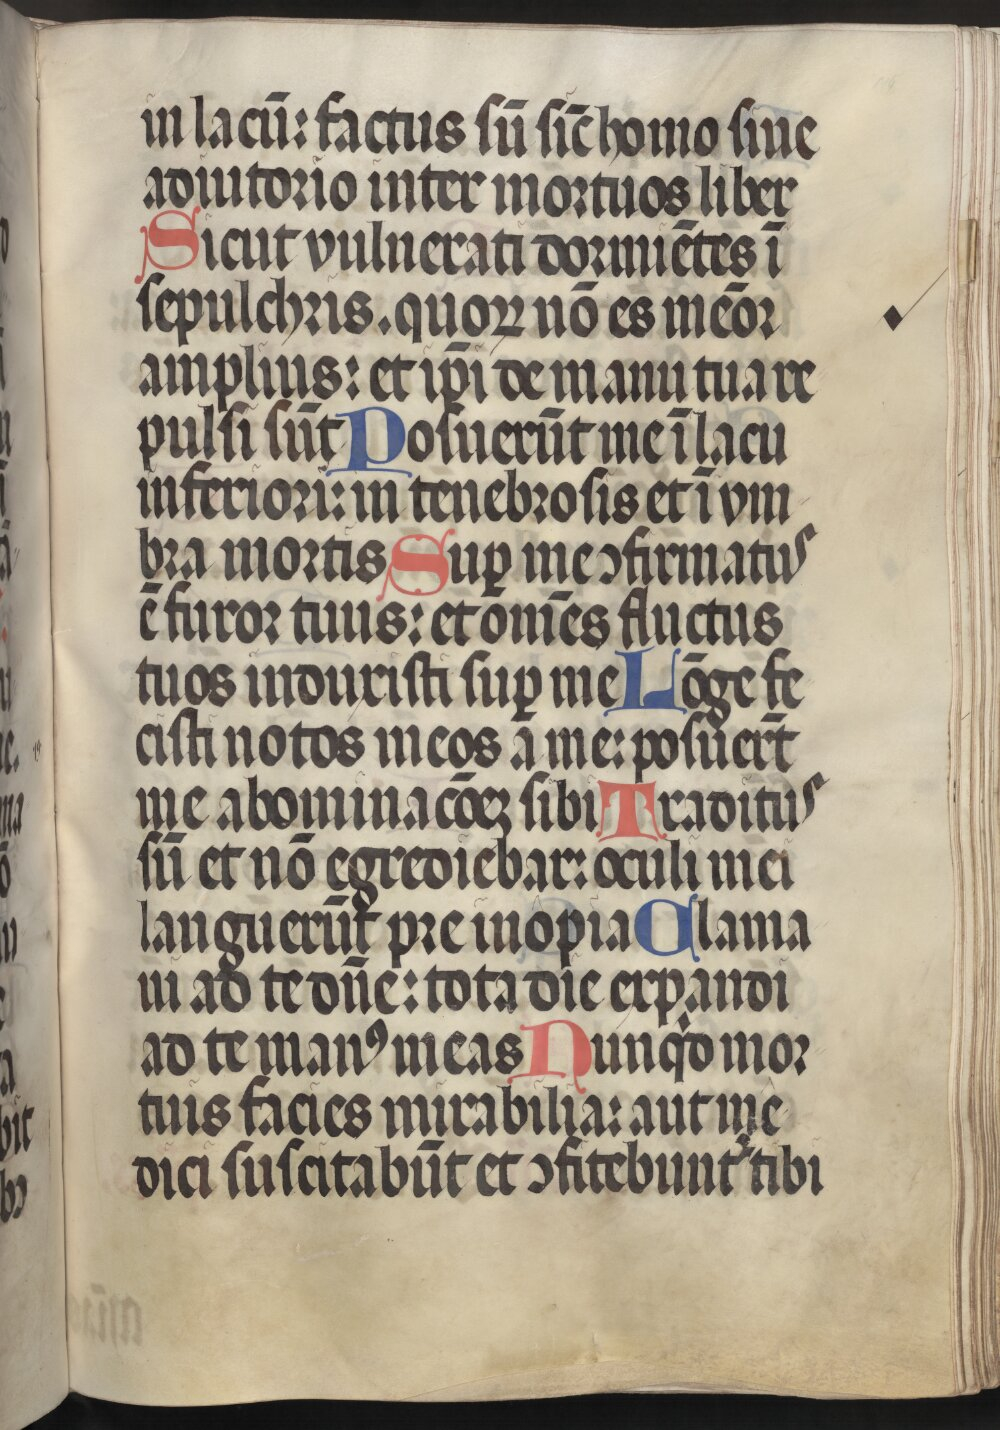 in lacū: factus sū sic̄ homo sine
adiutorio inter mortuos liber
Sicut vulnerati dormiētes ī
sepulchris. quoꝝ nō es meōr
amplius: et ip̄i de manu tua re
pulsi sūt Posuerūt me ī lacu
inferiori: in tenebrosis et ī vm
bra mortis Suꝑ me ɔfirmatus
ē furor tuus: et om̄es fluctus
tuos induxisti suꝑ me Lōge fe
cisti notos meos a me: posuer̄t
me abominacōeꝫ sibi Traditus
sū et nō egrediebar: oculi mei
languerūt pre inopia Clama
ui ad te dn̄e: tota die expandi
ad te manꝰ meas Nunqͥd mor
tuis facies mirabilia: aut me
dici suscitabūt et ɔfitebunt tibi